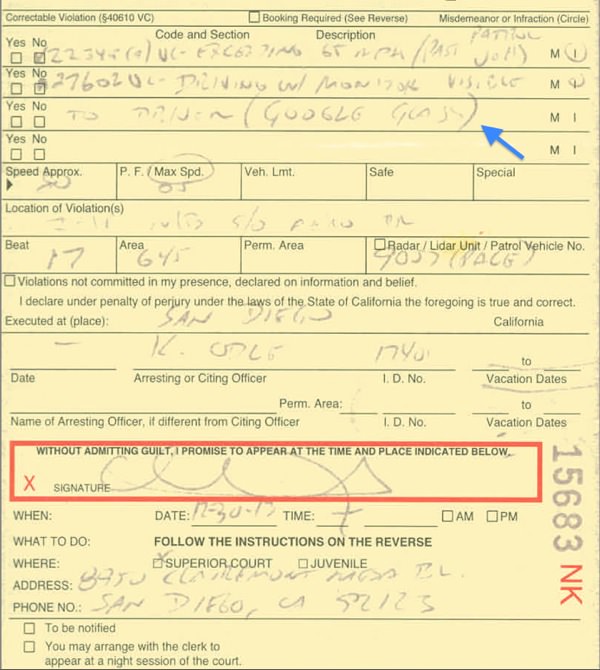 Correctable Violation (§40610 VC) Booking Required (See Reverse) Misdemeanor or Infraction (Circle)
Yes No Code and Section Description PATROL
VC- EXCEEDING 65 MPH M I
Yes No
27602 VC- DRIVING W/ MONITOR VISIBLE M I
Yes No
TO DRIVER (GOOGLE GLASS) M I
Yes No
M I
Speed Approx. P. F. / Max Spd. Veh. Lmt. Safe Special
65
Location of Violation(s)
Beat Area Perm. Area Radar / Lidar Unit / Patrol Vehicle No.
17 645 (PACE)
Violations not committed in my presence, declared on information and belief.
I declare under penalty of perjury under the laws of the State of California the foregoing is true and correct.
Executed at (place): SAN DIEGO California
K. 17401 to
Date Arresting or Citing Officer I. D. No. Vacation Dates
Perm. Area: to
Name of Arresting Officer, if different from Citing Officer I. D. No. Vacation Dates
WITHOUT ADMITTING GUILT, I PROMISE TO APPEAR AT THE TIME AND PLACE INDICATED BELOW.
X SIGNATURE
15683 NK
WHEN: DATE: TIME: AM PM
WHAT TO DO: FOLLOW THE INSTRUCTIONS ON THE REVERSE
WHERE: SUPERIOR COURT JUVENILE
ADDRESS: 8950 CLAIREMONT MESA BL.
PHONE NO.: SAN DIEGO, CA 92123
To be notified
You may arrange with the clerk to
appear at a night session of the court.